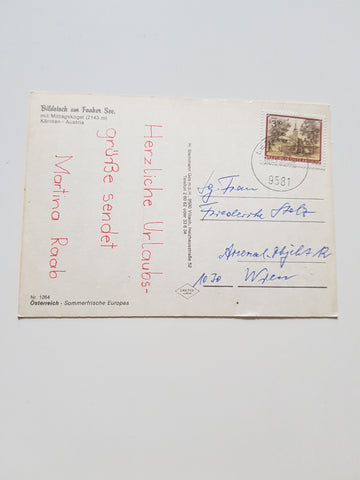 Bildstock am Faaker See.
mit Mittagskogel (2143 m)
Kärnten - Austria
Herzliche Urlaubs-
grüße sendet
Martina Raab
Nr. 1264
Österreich - Sommerfrische Europas
9581
Sg. Frau
Friederike Stelz
1030
Wien